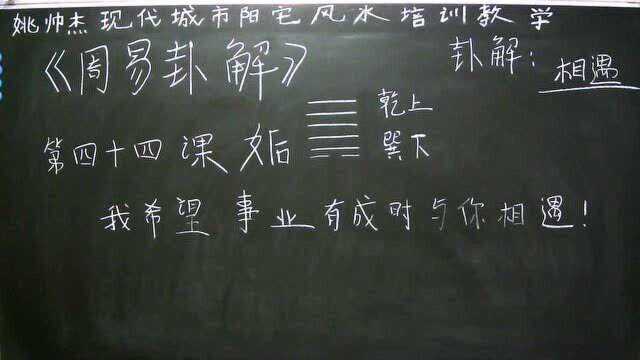 姚帅杰现代城市阳宅风水培训教学
《周易卦解》
卦解：相遇
第四十四课 姤 乾上
巽下
我希望事业有成时与你相遇！